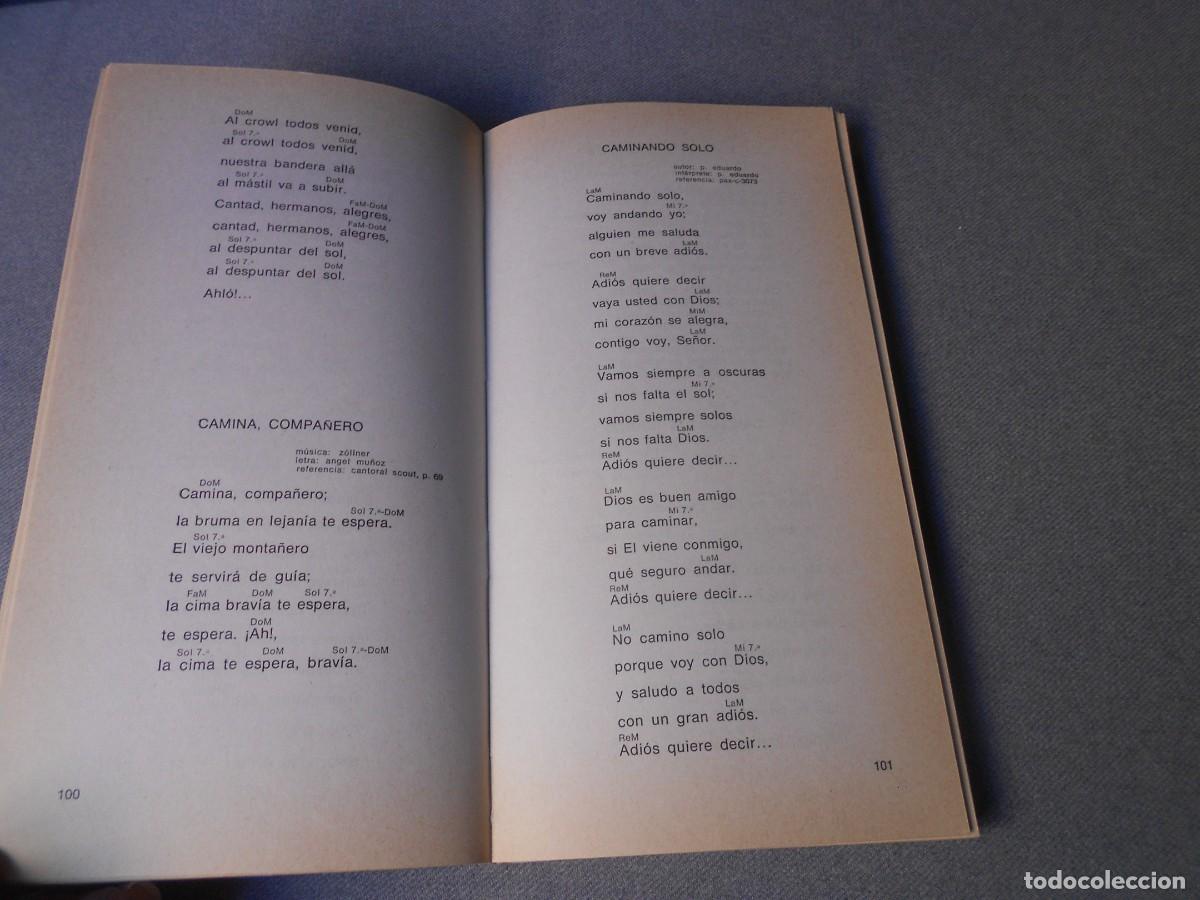 DoM
Al crowl todos venid,
Sol 7.ª DoM
al crowl todos venid,
nuestra bandera allá
Sol 7.ª DoM
al mástil va a subir.
FaM-DoM
Cantad, hermanos, alegres,
FaM-DoM
cantad, hermanos, alegres,
Sol 7.ª DoM
al despuntar del sol,
Sol 7.ª DoM
al despuntar del sol.
Ahló!...
CAMINA, COMPAÑERO
música: zöllner
letra: angel muñoz
referencia: cantoral scout, p. 69
DoM
Camina, compañero;
Sol 7.ª-DoM
la bruma en lejanía te espera.
Sol 7.ª
El viejo montañero
te servirá de guía;
FaM DoM Sol 7.ª
la cima bravía te espera,
DoM
te espera. ¡Ah!,
Sol 7.ª DoM Sol 7.ª-DoM
la cima te espera, bravía.
100
CAMINANDO SOLO
autor: p. eduardo
intérprete: p. eduardo
referencia: pax-c-3073
LaM
Caminando solo,
Mi 7.ª
voy andando yo;
alguien me saluda
LaM
con un breve adiós.
ReM
Adiós quiere decir
LaM
vaya usted con Dios;
MiM
mi corazón se alegra,
LaM
contigo voy, Señor.
LaM
Vamos siempre a oscuras
Mi 7.ª
si nos falta el sol;
vamos siempre solos
LaM
si nos falta Dios.
ReM
Adiós quiere decir...
LaM
Dios es buen amigo
Mi 7.ª
para caminar,
si El viene conmigo,
LaM
qué seguro andar.
ReM
Adiós quiere decir...
LaM
No camino solo
Mi 7.ª
porque voy con Dios,
y saludo a todos
LaM
con un gran adiós.
ReM
Adiós quiere decir...
101
todocoleccion